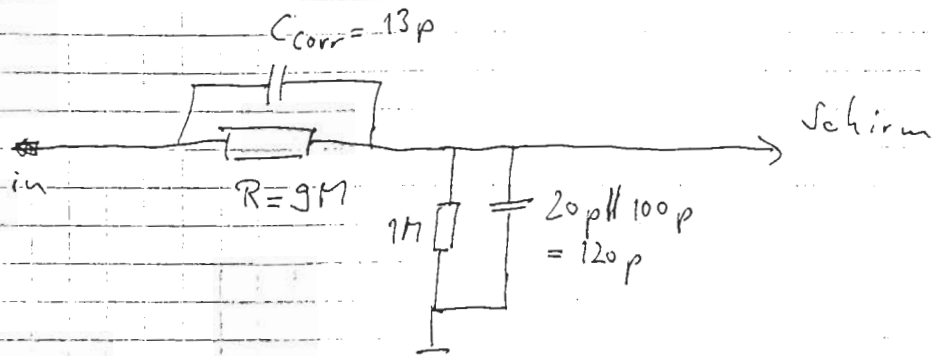 C_corr = 13p
Schirm
in
R = 9M
1M
20p || 100p
= 120p